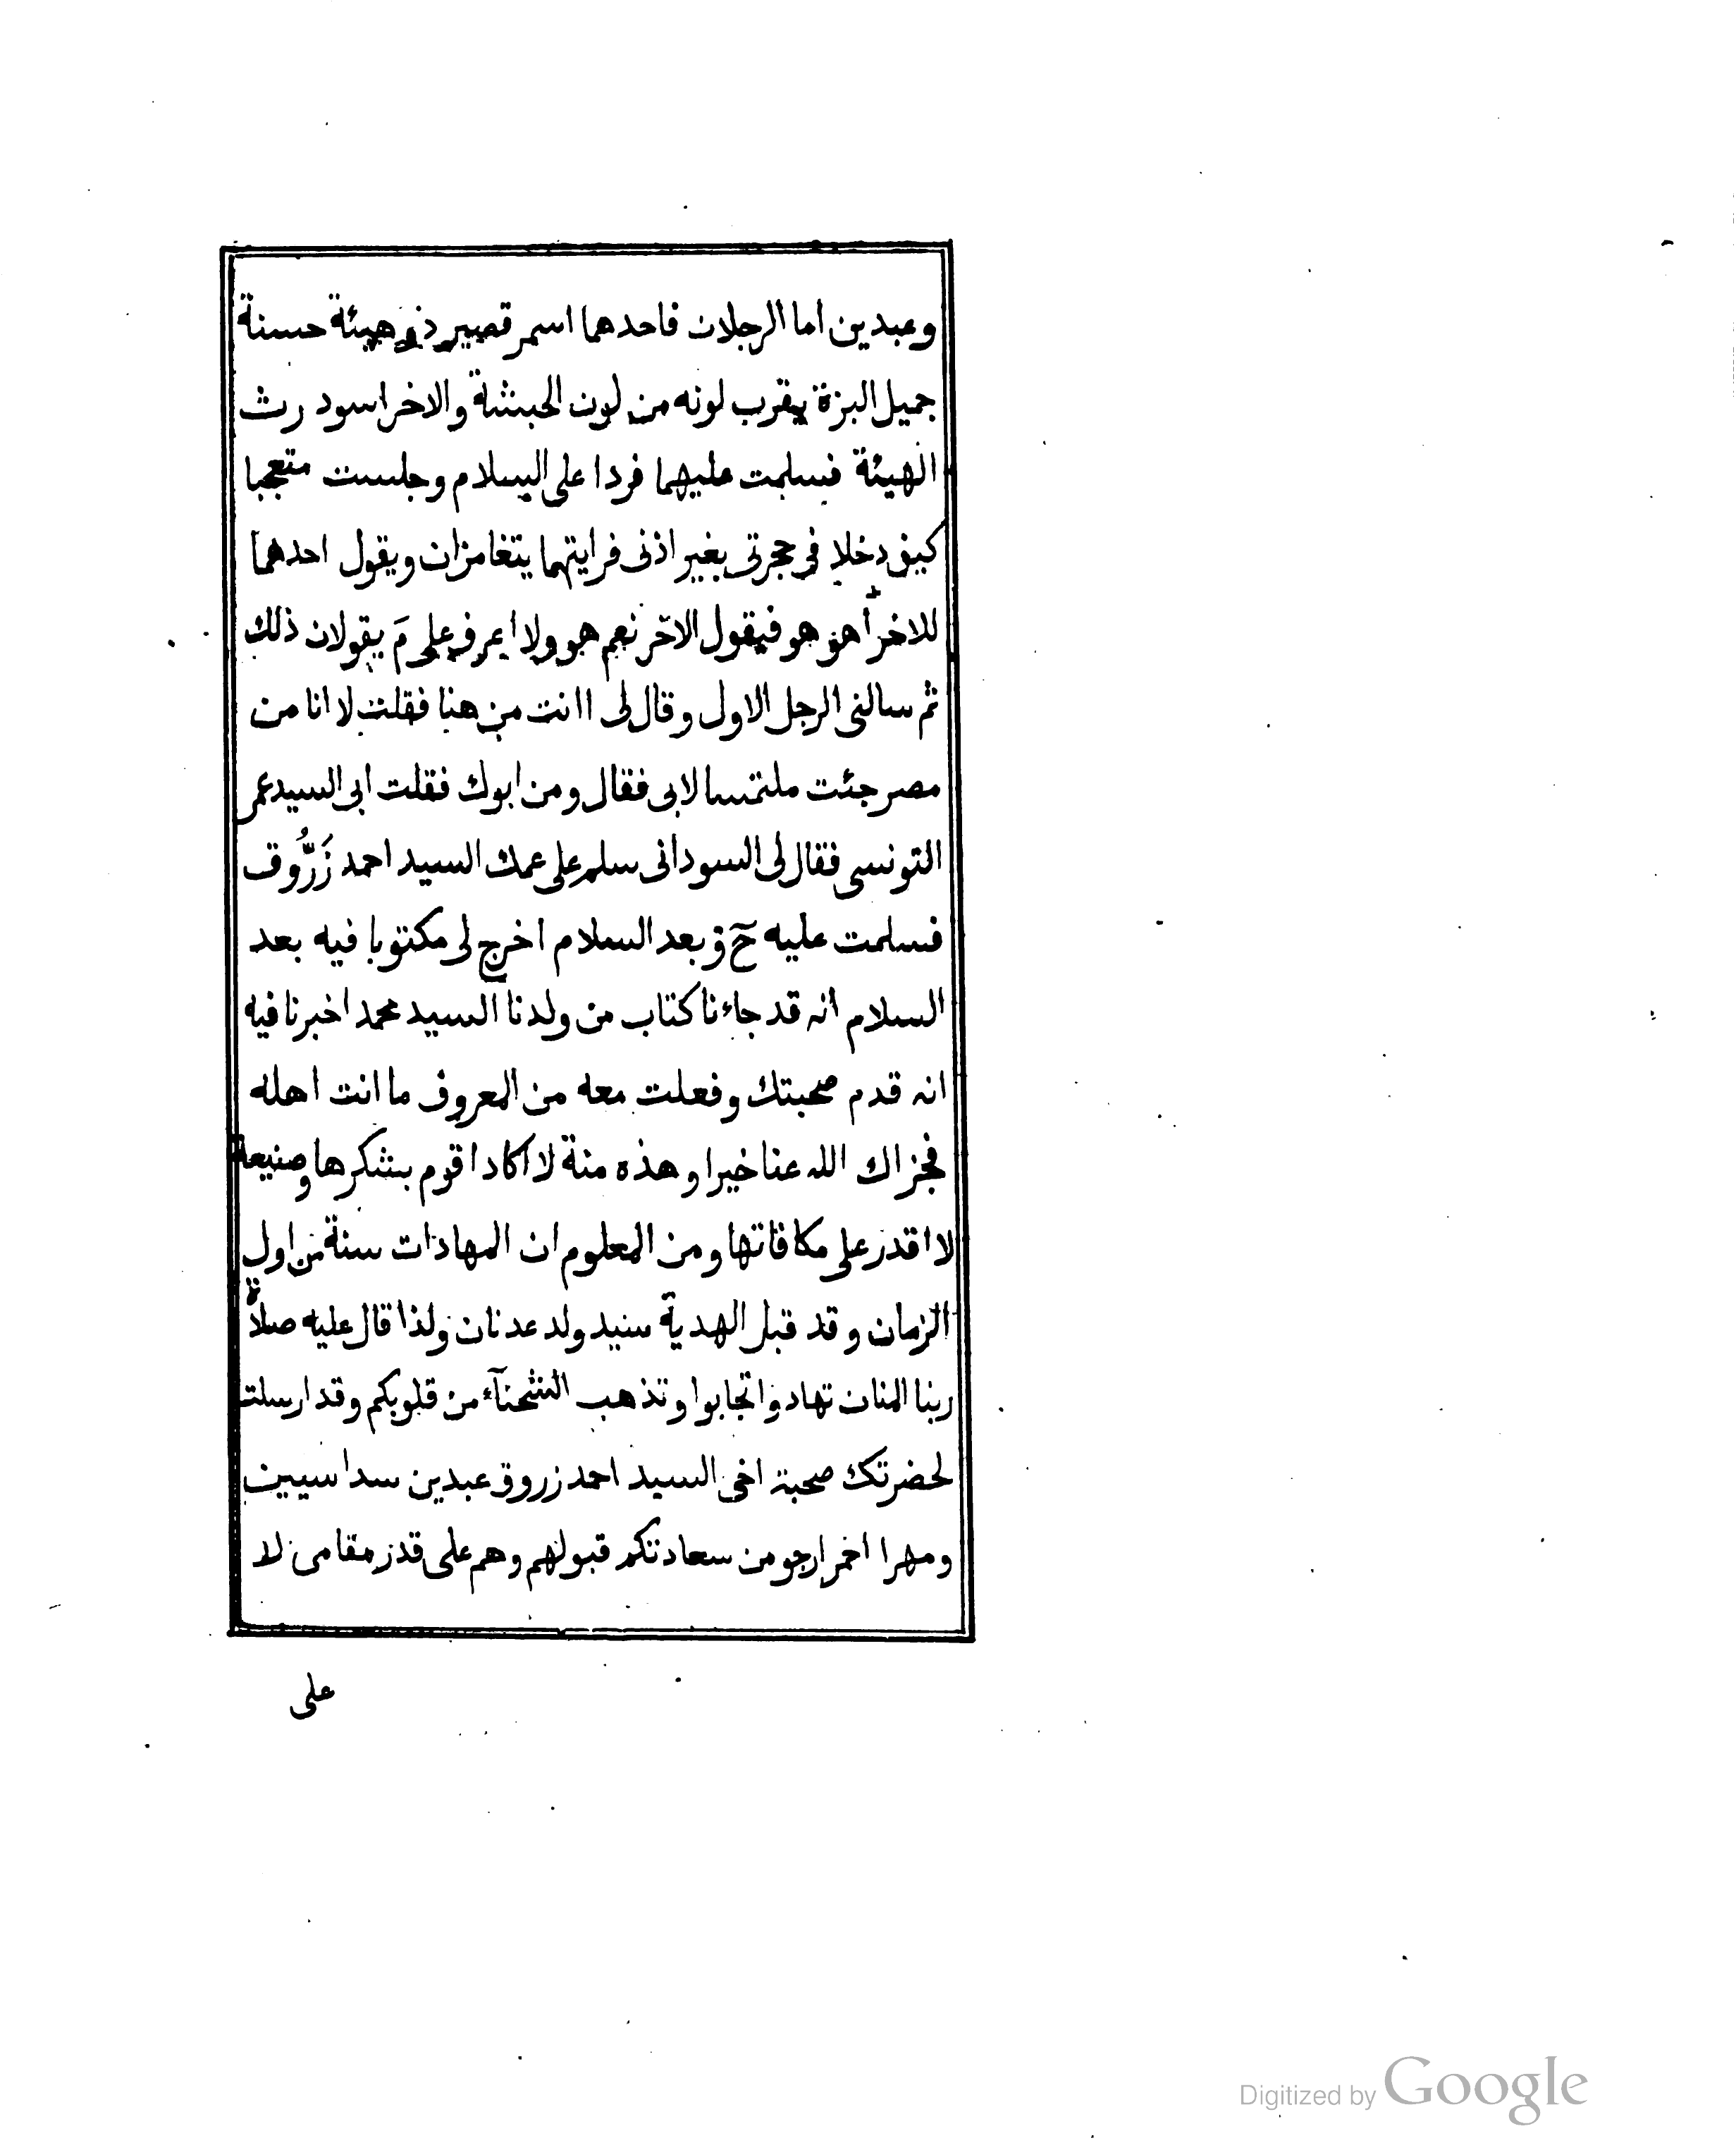 وعبدين اما الرجلان فاحدهما اسمر قصير ذو هيئة حسنة
جميل البزة يقرب لونه من لون الحبشة والاخر اسود رث
الهيئة فسلمت عليهما فردا على السلام وجلست متعجبا
كيف دخلا فى حجرتى بغير اذنى فرايتهما يتغامزان ويقول احدهما
للاخر أهو هو فيقول الآخر نعم هو ولا اعرف على مَ يقولان ذلك
ثم سالنى الرجل الاول وقال لى اانت من هنا فقلت لا انا من
مصر جئت ملتمسا لابى فقال ومن ابوك فقلت ابى السيد عمر
التونسى فقال لى السودانى سلم على عمك السيد احمد زَرُّوق
فسلمت عليه حٓ وبعد السلام اخرج لى مكتوبا فيه بعد
السلام انه قد جاءنا كتاب من ولدنا السيد محمد اخبرنا فيه
انه قدم صحبتك وفعلت معه من المعروف ما انت اهله
فجزاك الله عنا خيرا وهذه منة لا اكاد اقوم بشكرها وصنيعة
لا اقدر على مكافاتها ومن المعلوم ان المهادات سنة من اول
الزمان وقد قبل الهدية سيد ولد عدنان ولذا قال عليه صلاة
ربنا المنان تهادوا تحابوا وتذهب الشحنآء من قلوبكم وقد ارسلت
لحضرتك صحبة اخى السيد احمد زروق عبدين سداسيين
ومهرا احمر ارجو من سعادتكم قبولهم وهم على قدر مقامى لا
على
Digitized by Google